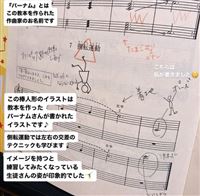 『バーナム』とは
この教本を作られた
作曲家のお名前です
7
側転運動
これは
私が書きました
この棒人形のイラストは
教本を作った
バーナムさんが書かれた
イラストです♪
側転運動では左右の交差の
テクニックも学びます
イメージを持つと
練習してみたくなっている
生徒さんの姿が印象的でした